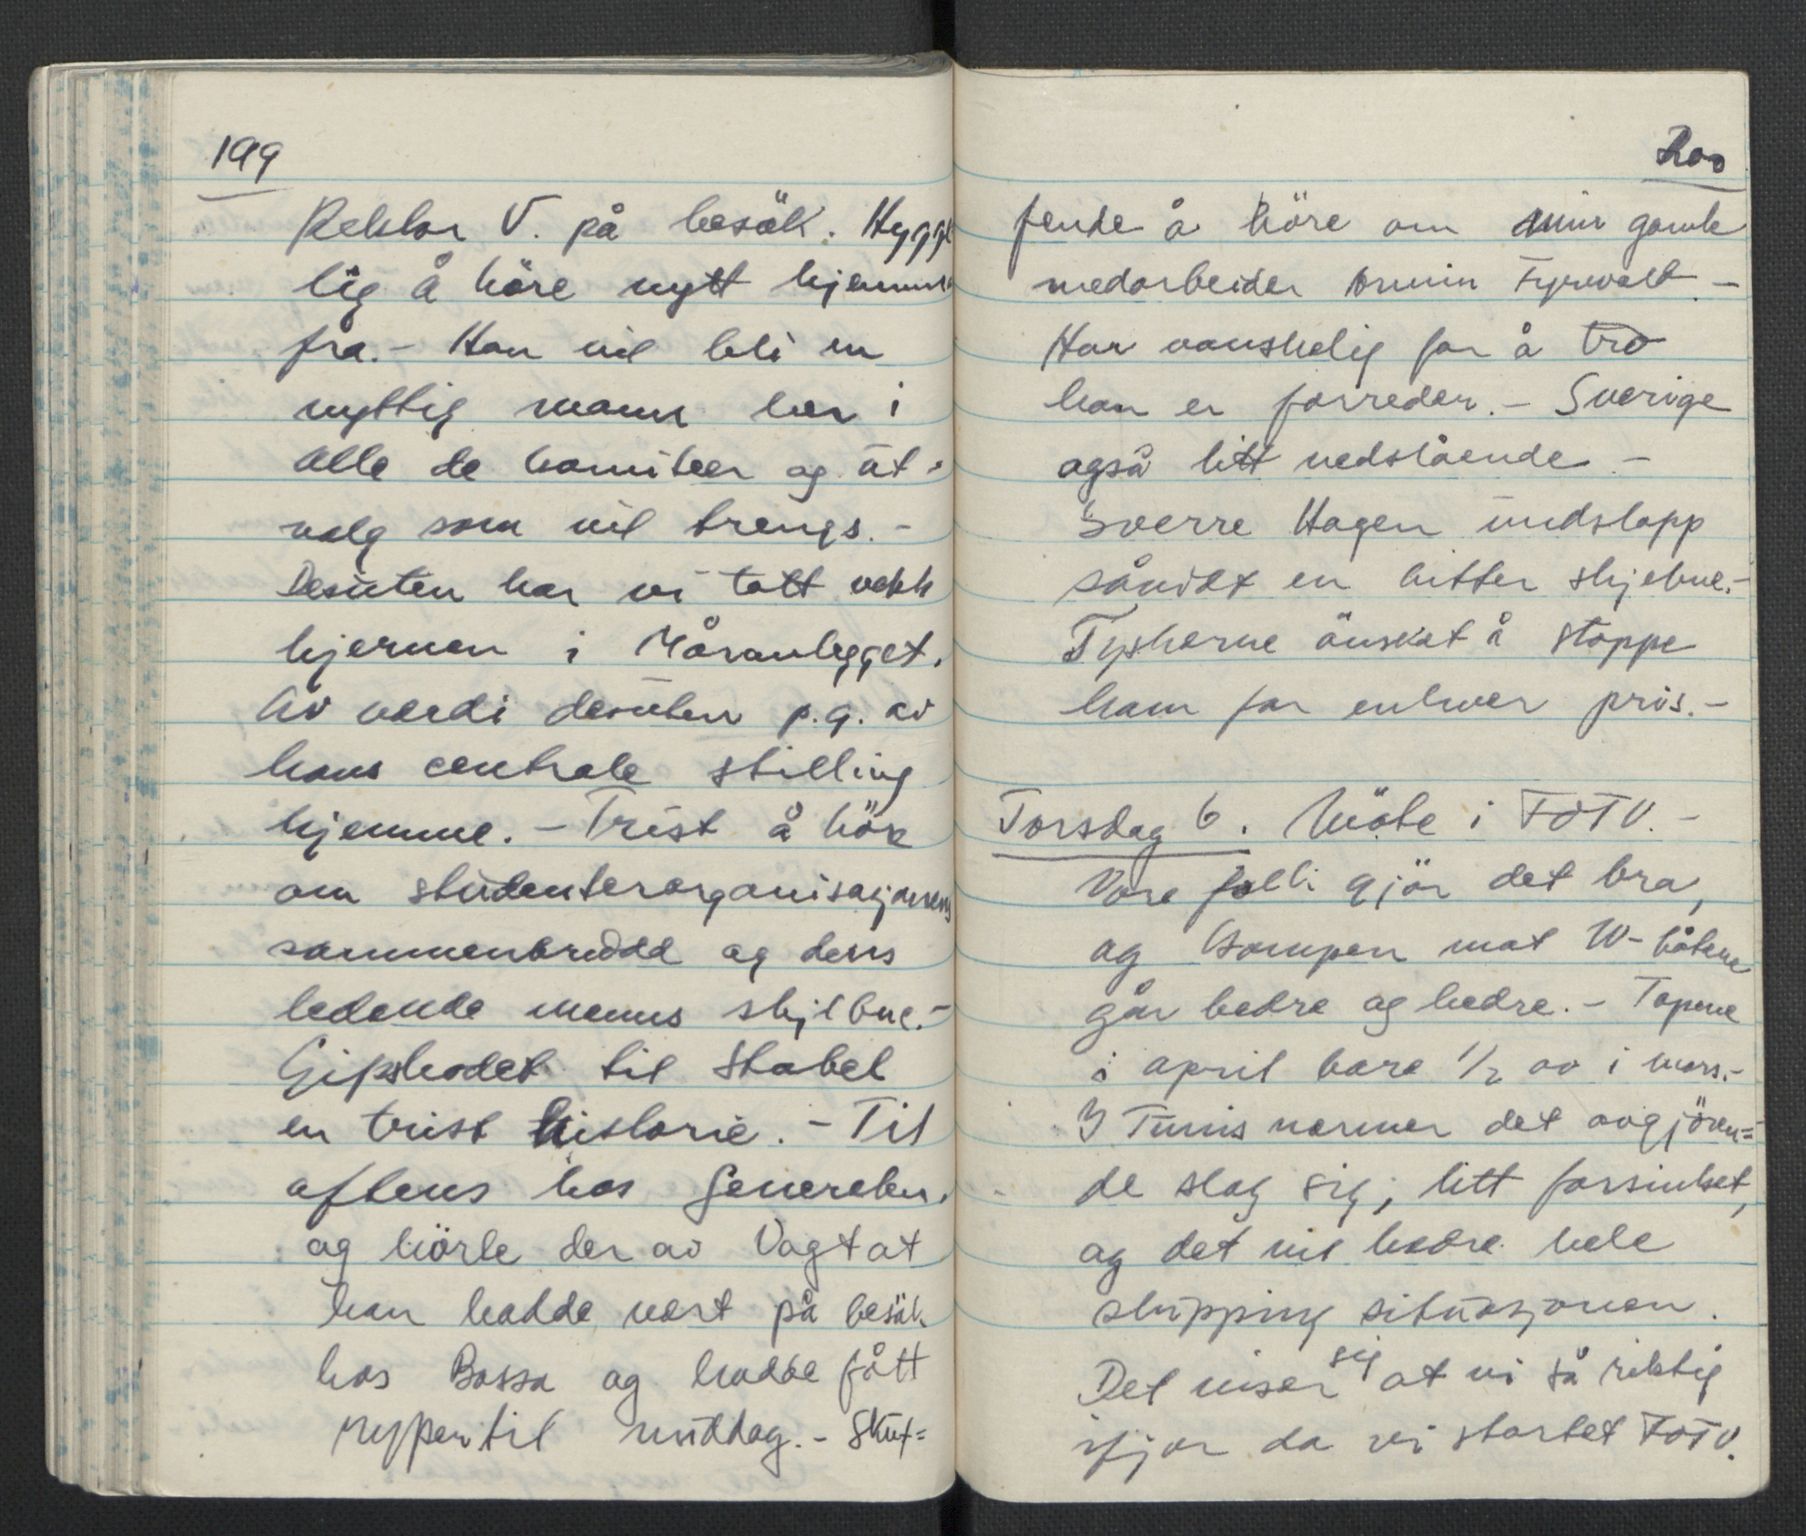 199
Rektor V. på besök. Hygge
lig å höre nytt hjemme
fra. - Han vil bli en
nyttig mann her i
alle de komiteer og ut-
valg som vil trengs. -
Desuten har vi tatt vekk
hjernen i Måranlegget.
Av verdi desuten p.g. av
hans centrale stilling
hjemme. - Trist å höre
om studenterorganisasjonens
sammenbrudd og dens
ledende menns skjebne. -
Gipshodet til Stabel
en trist historie. - Til
aftens hos Generalen.
og hörte der av Vogt at
han hadde vært på besök
hos Bossa og hadde fått
ryper til middag. - Skuf=
200
fende å höre om min gamle
medarbeider Armin Fyrwalt -
Har vanskelig for å tro
han er forreder. - Sverige
også litt nedslående -
Sverre Hagen undslapp
såvidt en bitter skjebne. -
Tyskerne önsket å stoppe
ham for enhver pris. -
Torsdag 6. Möte i FOTU. -
Våre folk gjör det bra,
og kampen mot U-båtene
går bedre og bedre. - Tapene
i april bare 1/2 av i mars. -
I Tunis nermer det avgjören=
de slag sig, litt forsinket,
og det vil bedre hele
shipping situasjonen.
Det viser sig at vi så riktig
ifjor da vi startet FOTU.